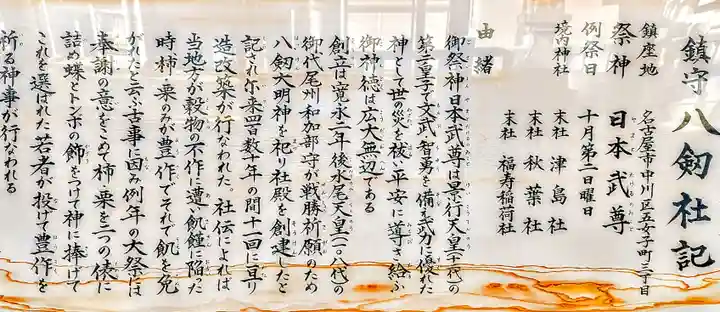 鎮守八剱社記
鎮座地 名古屋市中川区五女子町三丁目
祭神 日本武尊
例祭日 十月第二日曜日
境内神社 末社 津島社
末社 秋葉社
末社 福寿稲荷社
由緒
御祭神日本武尊は景行天皇(十二代)の
第二皇子で文武智勇を備え武力に優れた
神として世の災を祓い平安に導き給ふ
御神徳は広大無辺である
創立は寛永二年後水尾天皇(一〇八代)の
御代尾州和加部守が戦勝祈願のため
八剱大明神を祀り社殿を創建したと
記され尓来四百数十年の間十一回に亘り
造改築が行なわれた。社伝によれば
当地方が穀物の不作に遭い飢饉に陥った
時柿、栗のみが豊作でそれで飢を免
がれたと云ふ古事に因み例年の大祭には
奉謝の意をこめて柿、栗を二つの俵に
詰め蝶とトンボの飾をつけて神に捧げて
これを選ばれた若者が投げて豊作を
祈る神事が行なわれる